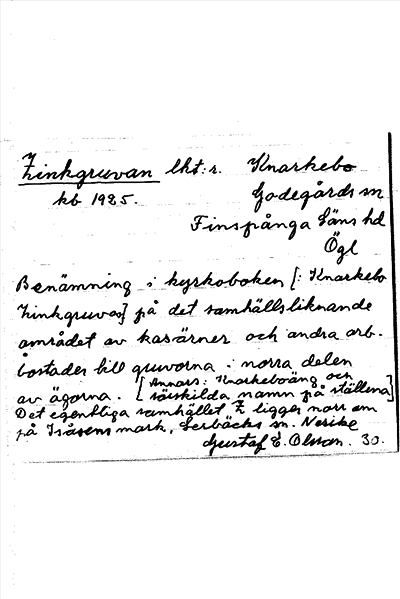 Zinkgruvan lht:r. Knarkebo
kb 1925. Godegårds sn
Finspånga läns hd
Ögl
Benämning i kyrkoboken [: Knarkebo
Zinkgruvas] på det samhällsliknande
området av kasärner och andra arb.
bostäder till gruvorna i norra delen
av ägorna. [Annars: Knarkeboäng och
särskilda namn på ställena]
Det egentliga samhället Z ligger norr om
på Isåsens mark, Lerbäcks sn. Nerike
Gustaf E. Olsson. 30.